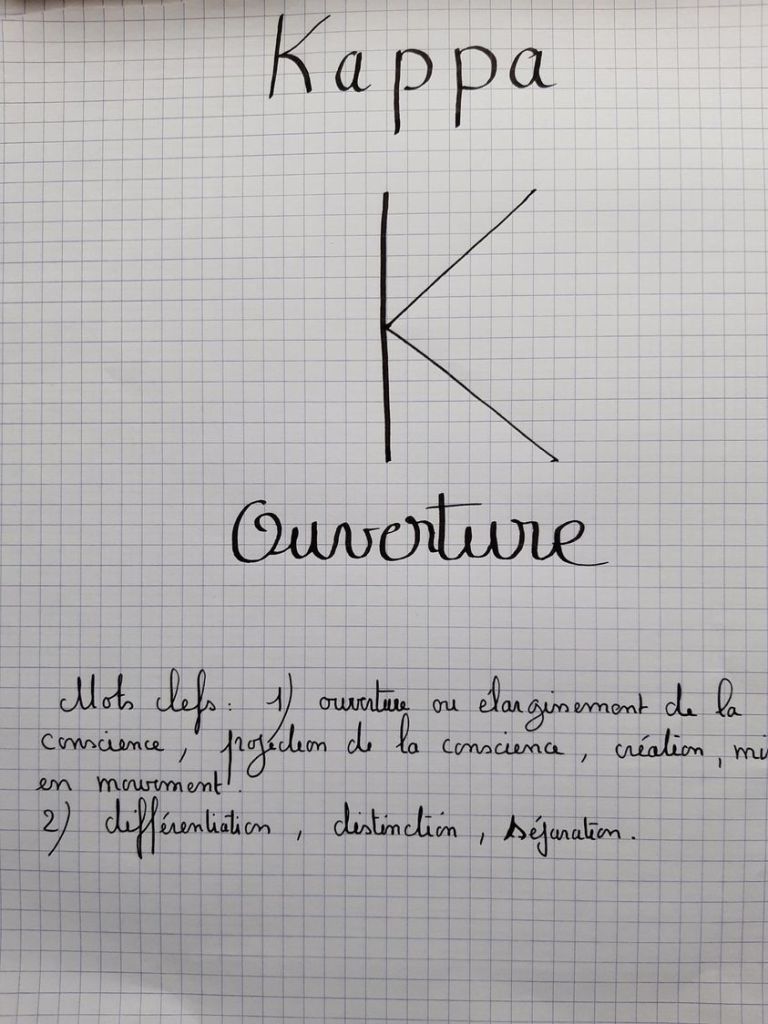 Kappa
K
Ouverture
Mots clefs : 1) ouverture ou élargissement de la
conscience, projection de la conscience, création, mi
en mouvement.
2) différentiation, distinction, séparation.